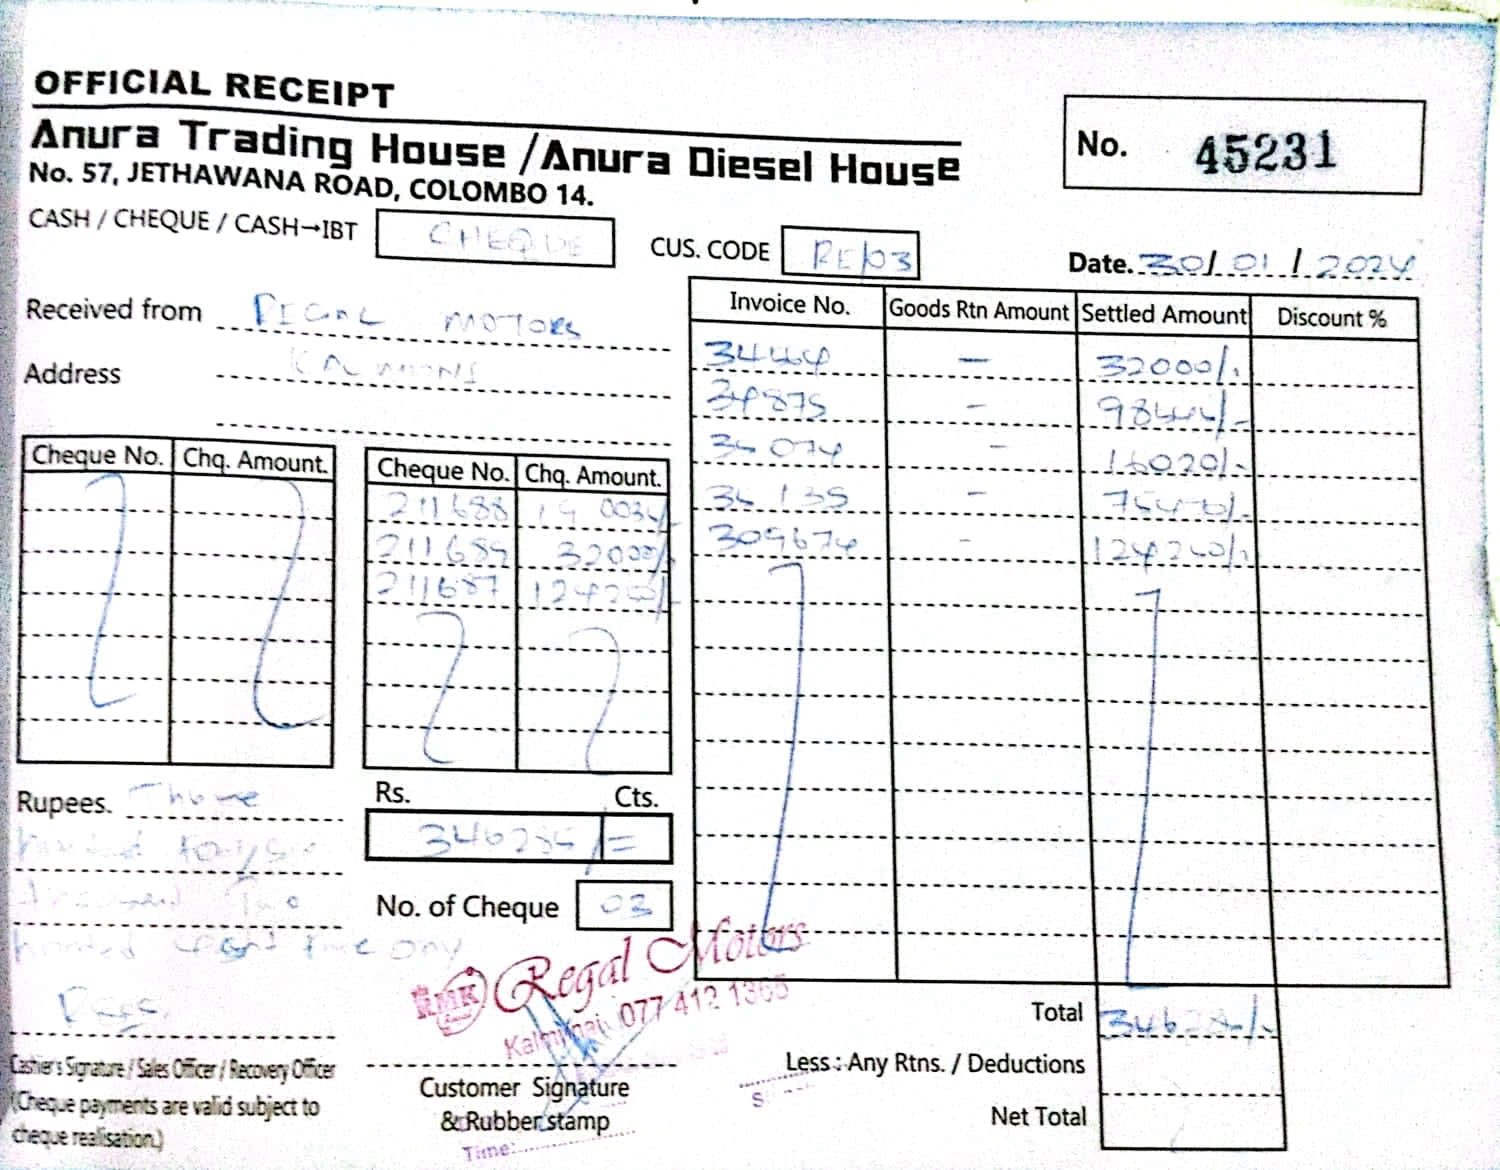 OFFICIAL RECEIPT
Anura Trading House /Anura Diesel House
No. 57, JETHAWANA ROAD, COLOMBO 14.
No. 45231
CASH / CHEQUE / CASH→IBT CHEQUE
CUS. CODE RE/03
Date. 30/01/2024
Received from MOTORS
Address
Invoice No. Goods Rtn Amount Settled Amount Discount %
34464 – 32000/.
34875 –
34074 – 16020/-
34135 –
309674 - 124240/-
Cheque No. Chq. Amount.
Cheque No. Chq. Amount.
211688
211689 32000/-
211687
Rupees. Three
Two
only
Rs. Cts.
/=
No. of Cheque 03
Regal Motors
RMK
Kalmunai, 077 412 1365
Cashier's Signature / Sales Officer / Recovery Officer
(Cheque payments are valid subject to
cheque realisation.)
Customer Signature
& Rubber stamp
Time:
Total
Less : Any Rtns. / Deductions
Net Total